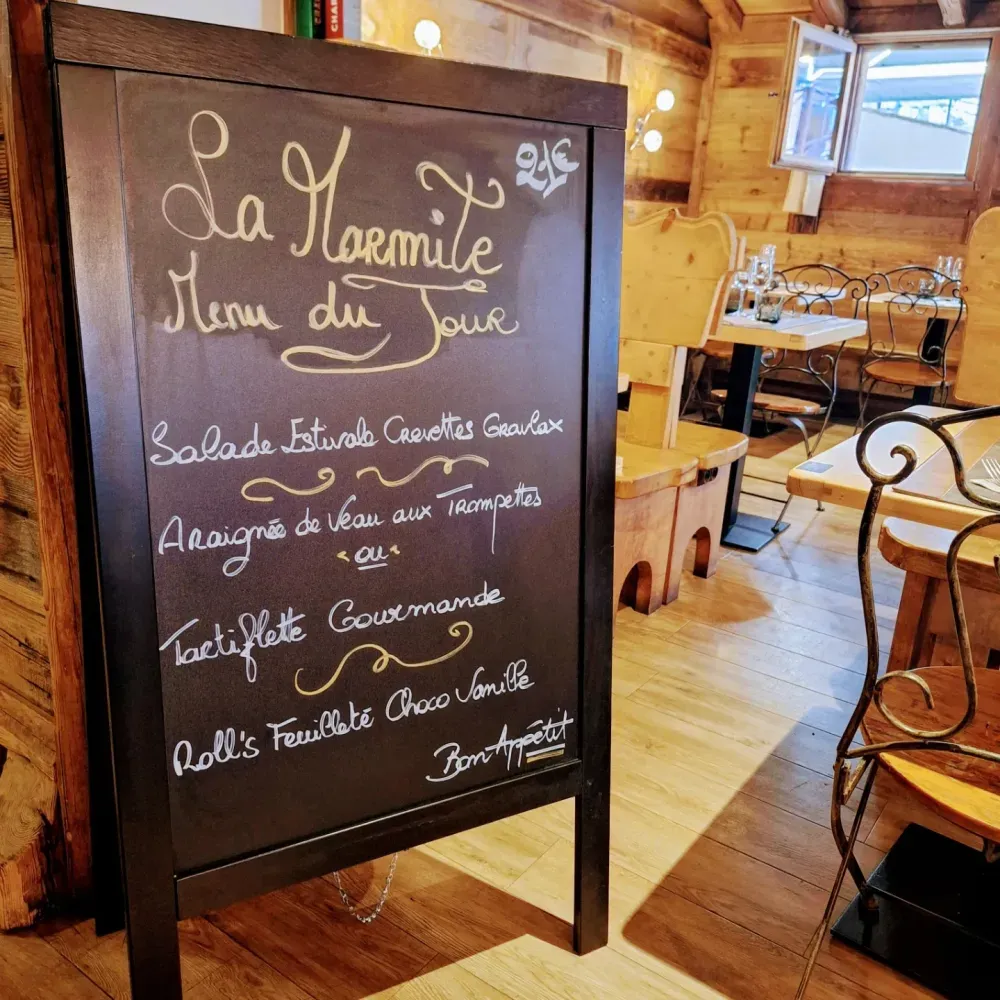 La Marmite
21€
Menu du Jour
Salade Estivale Crevettes Gravlax
Araignée de Veau aux Trompettes
ou
Tartiflette Gourmande
Roll's Feuilleté Choco Vanille
Bon Appétit